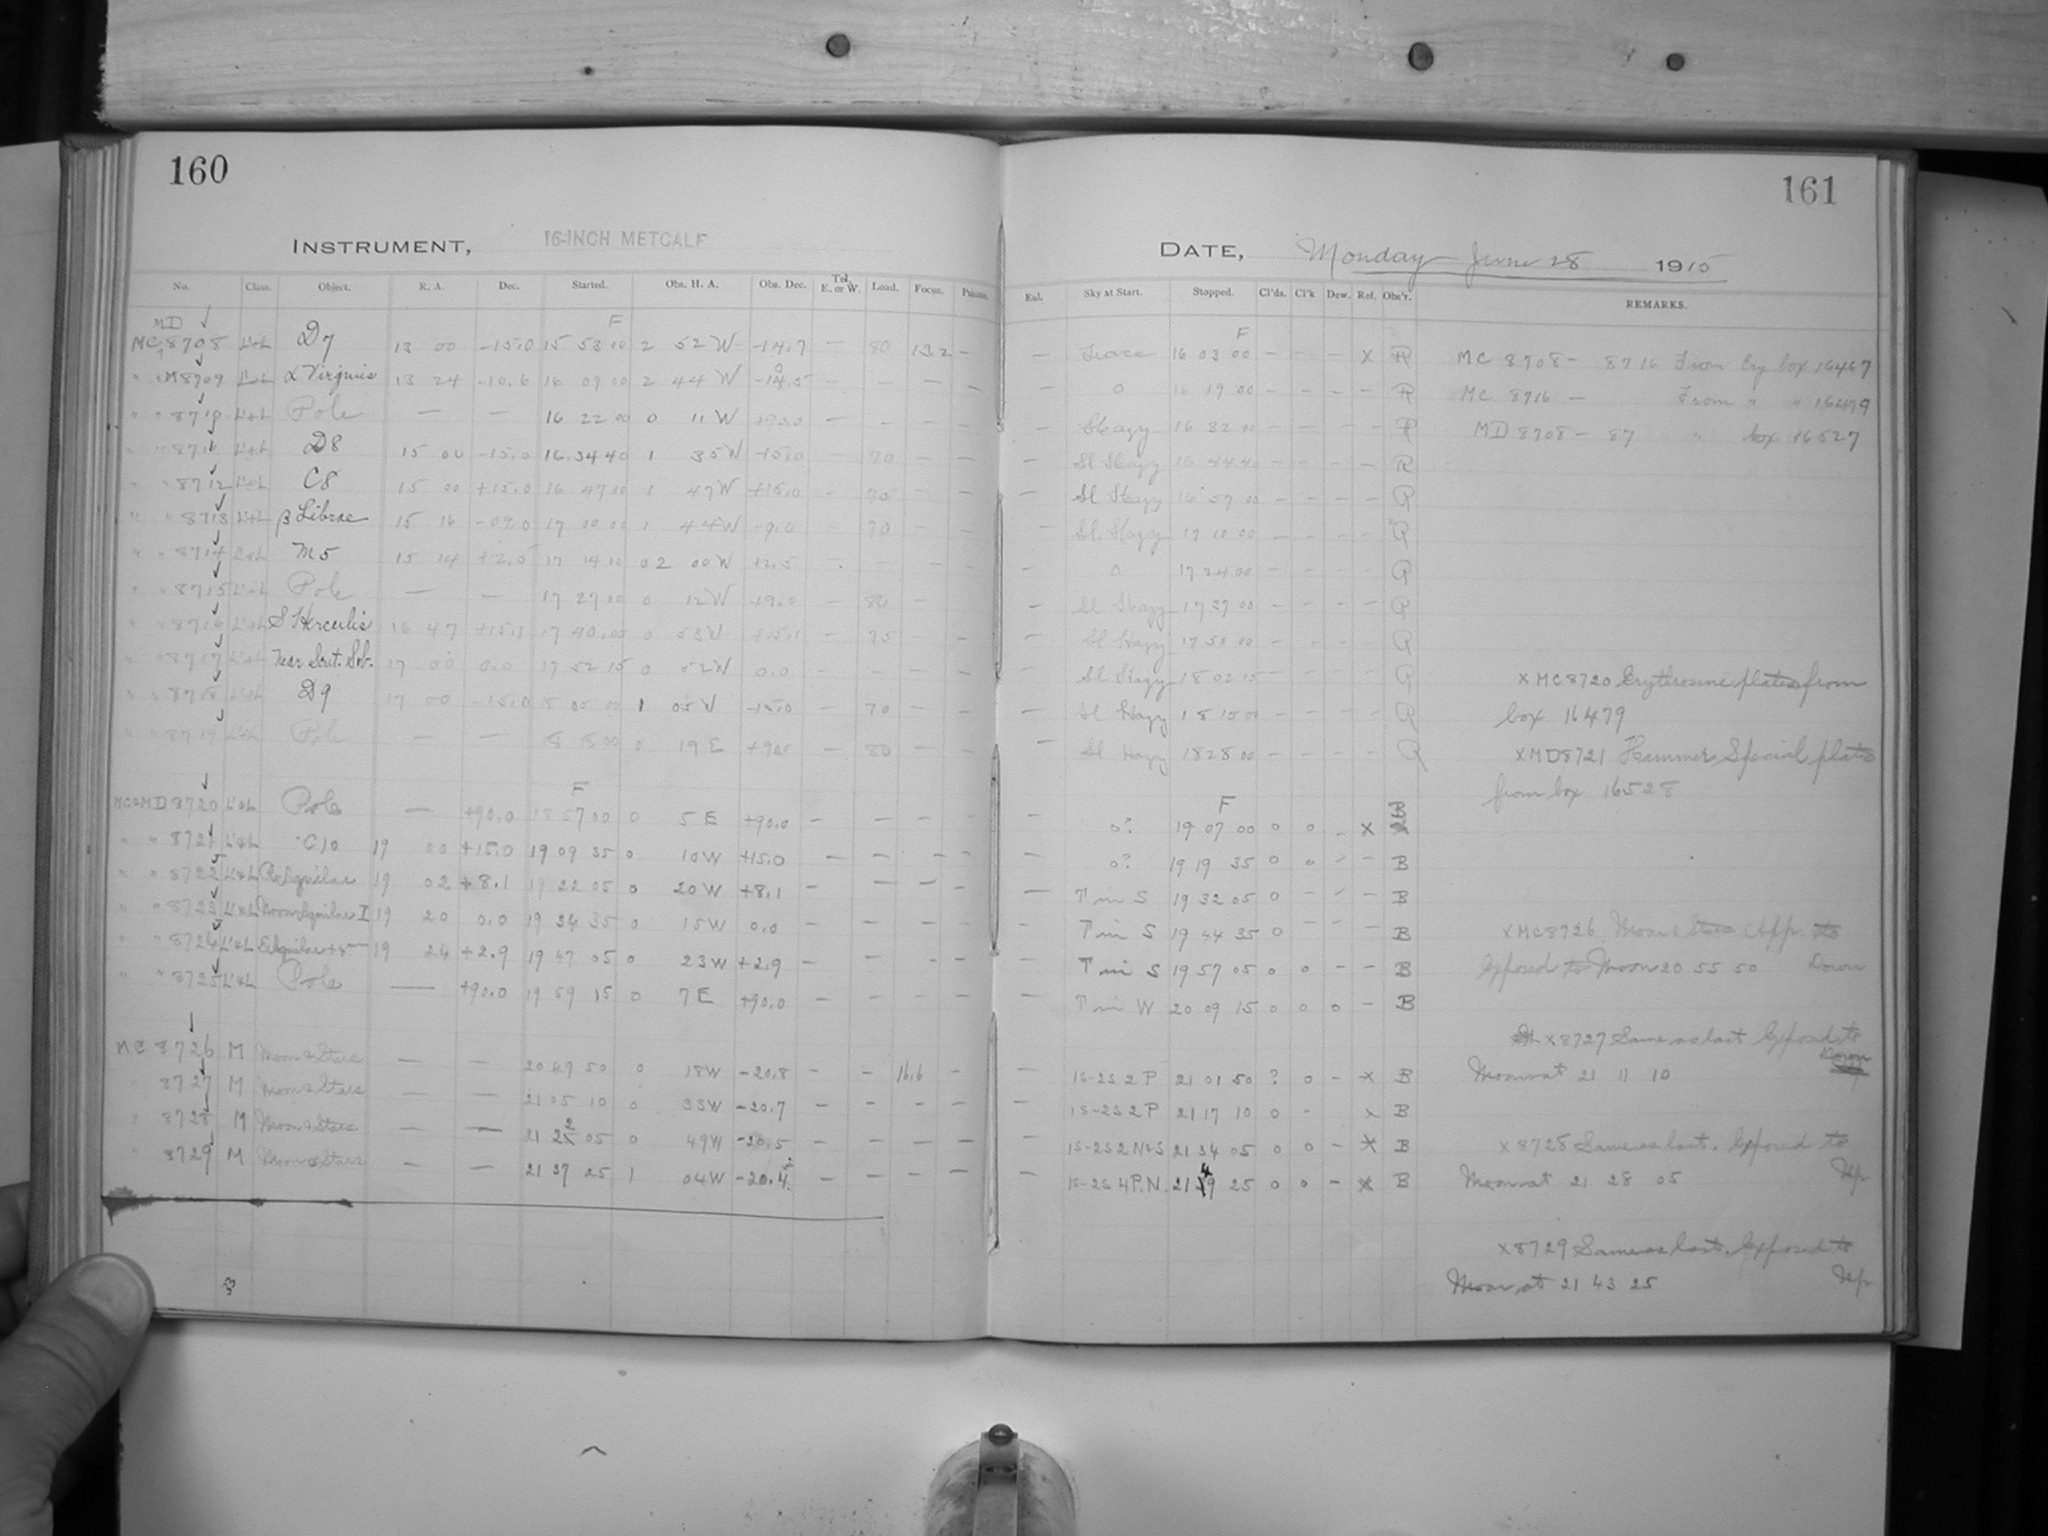 160
161
INSTRUMENT, 16-INCH METCALF
DATE, Monday June 28 1915
No. Class. Object. R. A. Dec. Started. Obs. H. A. Obs. Dec. Tel. E. or W. Load. Focus.
Sky at Start. Stopped. Cl'ds. Cl'k Dew. Ref. Obs'r. REMARKS.
MD F F
MC 8708 L&L D7 13 00 -15.0 15 53 10 2 52 W -14.7 — 80 13.2 — — 16 03 00 — — — X R MC 8708 — 8716 From Ery box 16467
" " 8709 L&L α Virginis 13 24 -10.6 16 09 00 2 44 W — — — — 0 16 19 00 — — — — R MC 8716 — From " " 16479
" " L&L Pole — — 16 22 00 0 11 W +90.0 — — — — Hazy 16 32 00 — — — — R MD 8708 — 87 " box 16527
" " 8711 L&L D8 15 00 -15.0 16 34 40 1 35 W -15.0 — 70 — — — Sl Hazy 16 44 40 — — — — R
" " 8712 L&L C8 15 00 +15.0 16 47 00 1 47 W +15.0 — 75 — — — Sl Hazy 16 57 00 — — — — R
" " 8713 L&L β Librae 15 16 -09.0 17 00 00 1 44 W -9.0 — 70 — — — Sl. Hazy 17 10 00 — — — — R
" " 8714 L&L M5 15 14 +2.5 17 14 00 02 00 W +2.5 — — — 0 17 24 00 — — — — R
" " 8715 L&L Pole — — 17 27 00 0 12 W — 80 — — — Sl Hazy 17 37 00 — — — — R
" " 8716 L&L S Herculis 16 47 +15.1 17 40 00 0 53 W +15.1 — 75 — — Sl Hazy 17 50 00 — — — — R
" " 8717 L&L Near Scut. Sob. 17 00 0.0 17 52 15 0 52 W 0.0 — — — — Sl Hazy 18 02 15 — — — — R
x MC 8720 Erythrosine plates from
" " 8718 L&L D9 17 00 -15.0 18 05 00 1 05 W -15.0 — 70 — — — Sl Hazy 18 15 00 — — — — R box 16479
" " 8719 L&L Pole — — 18 18 00 0 19 E +90.0 — 80 — — — Sl Hazy 18 28 00 — — — — R x MD 8721 Hammer Special plates
from box 16528
F F
MC&MD 8720 L&L Pole — +90.0 18 57 00 0 5 E +90.0 — — — — — 0? 19 07 00 0 0 — X B
" " 8721 L&L C10 19 00 +15.0 19 09 35 0 10 W +15.0 — — — — — 0? 19 19 35 0 0 — — B
" " 8722 L&L R Aquilae 19 02 +8.1 19 22 05 0 20 W +8.1 — — — — — T in S 19 32 05 0 — — — B
" " 8723 L&L Nova Aquilae I 19 20 0.0 19 34 35 0 15 W 0.0 — — — — — T in S 19 44 35 0 — — — B x MC 8726 Moon & Stars App. to
" " 8724 L&L 19 24 +2.9 19 47 05 0 23 W +2.9 — — — — — T in S 19 57 05 0 0 — — B Exposed to Moon 20 55 50 Down
" " 8725 L&L Pole — +90.0 19 59 15 0 7 E +90.0 — — — — — T in W 20 09 15 0 0 0 — B
x 8727 Same as last Exposed to
MC 8726 M Moon & Stars — — 20 49 50 0 18 W -20.8 — — 16.6 — — 1S-2S 2 P 21 01 50 ? 0 — X B Moon at 21 11 10 Down
" 8727 M Moon & Stars — — 21 05 10 0 33 W -20.7 — — — — — 1S-2S 2 P 21 17 10 0 — x B
" 8728 M Moon & Stars — — 21 22 05 0 49 W -20.5 — — — — — 1S-2S 2 N&S 21 34 05 0 0 — X B x 8728 Same as last. Exposed to
" 8729 M Moon & Stars — — 21 37 25 1 04 W -20.4 — — — — — 1S-2S 4 P.N. 21 49 25 0 0 — X B Moon at 21 28 05 Up
x 8729 Same as last. Exposed to
Moon at 21 43 25 Up